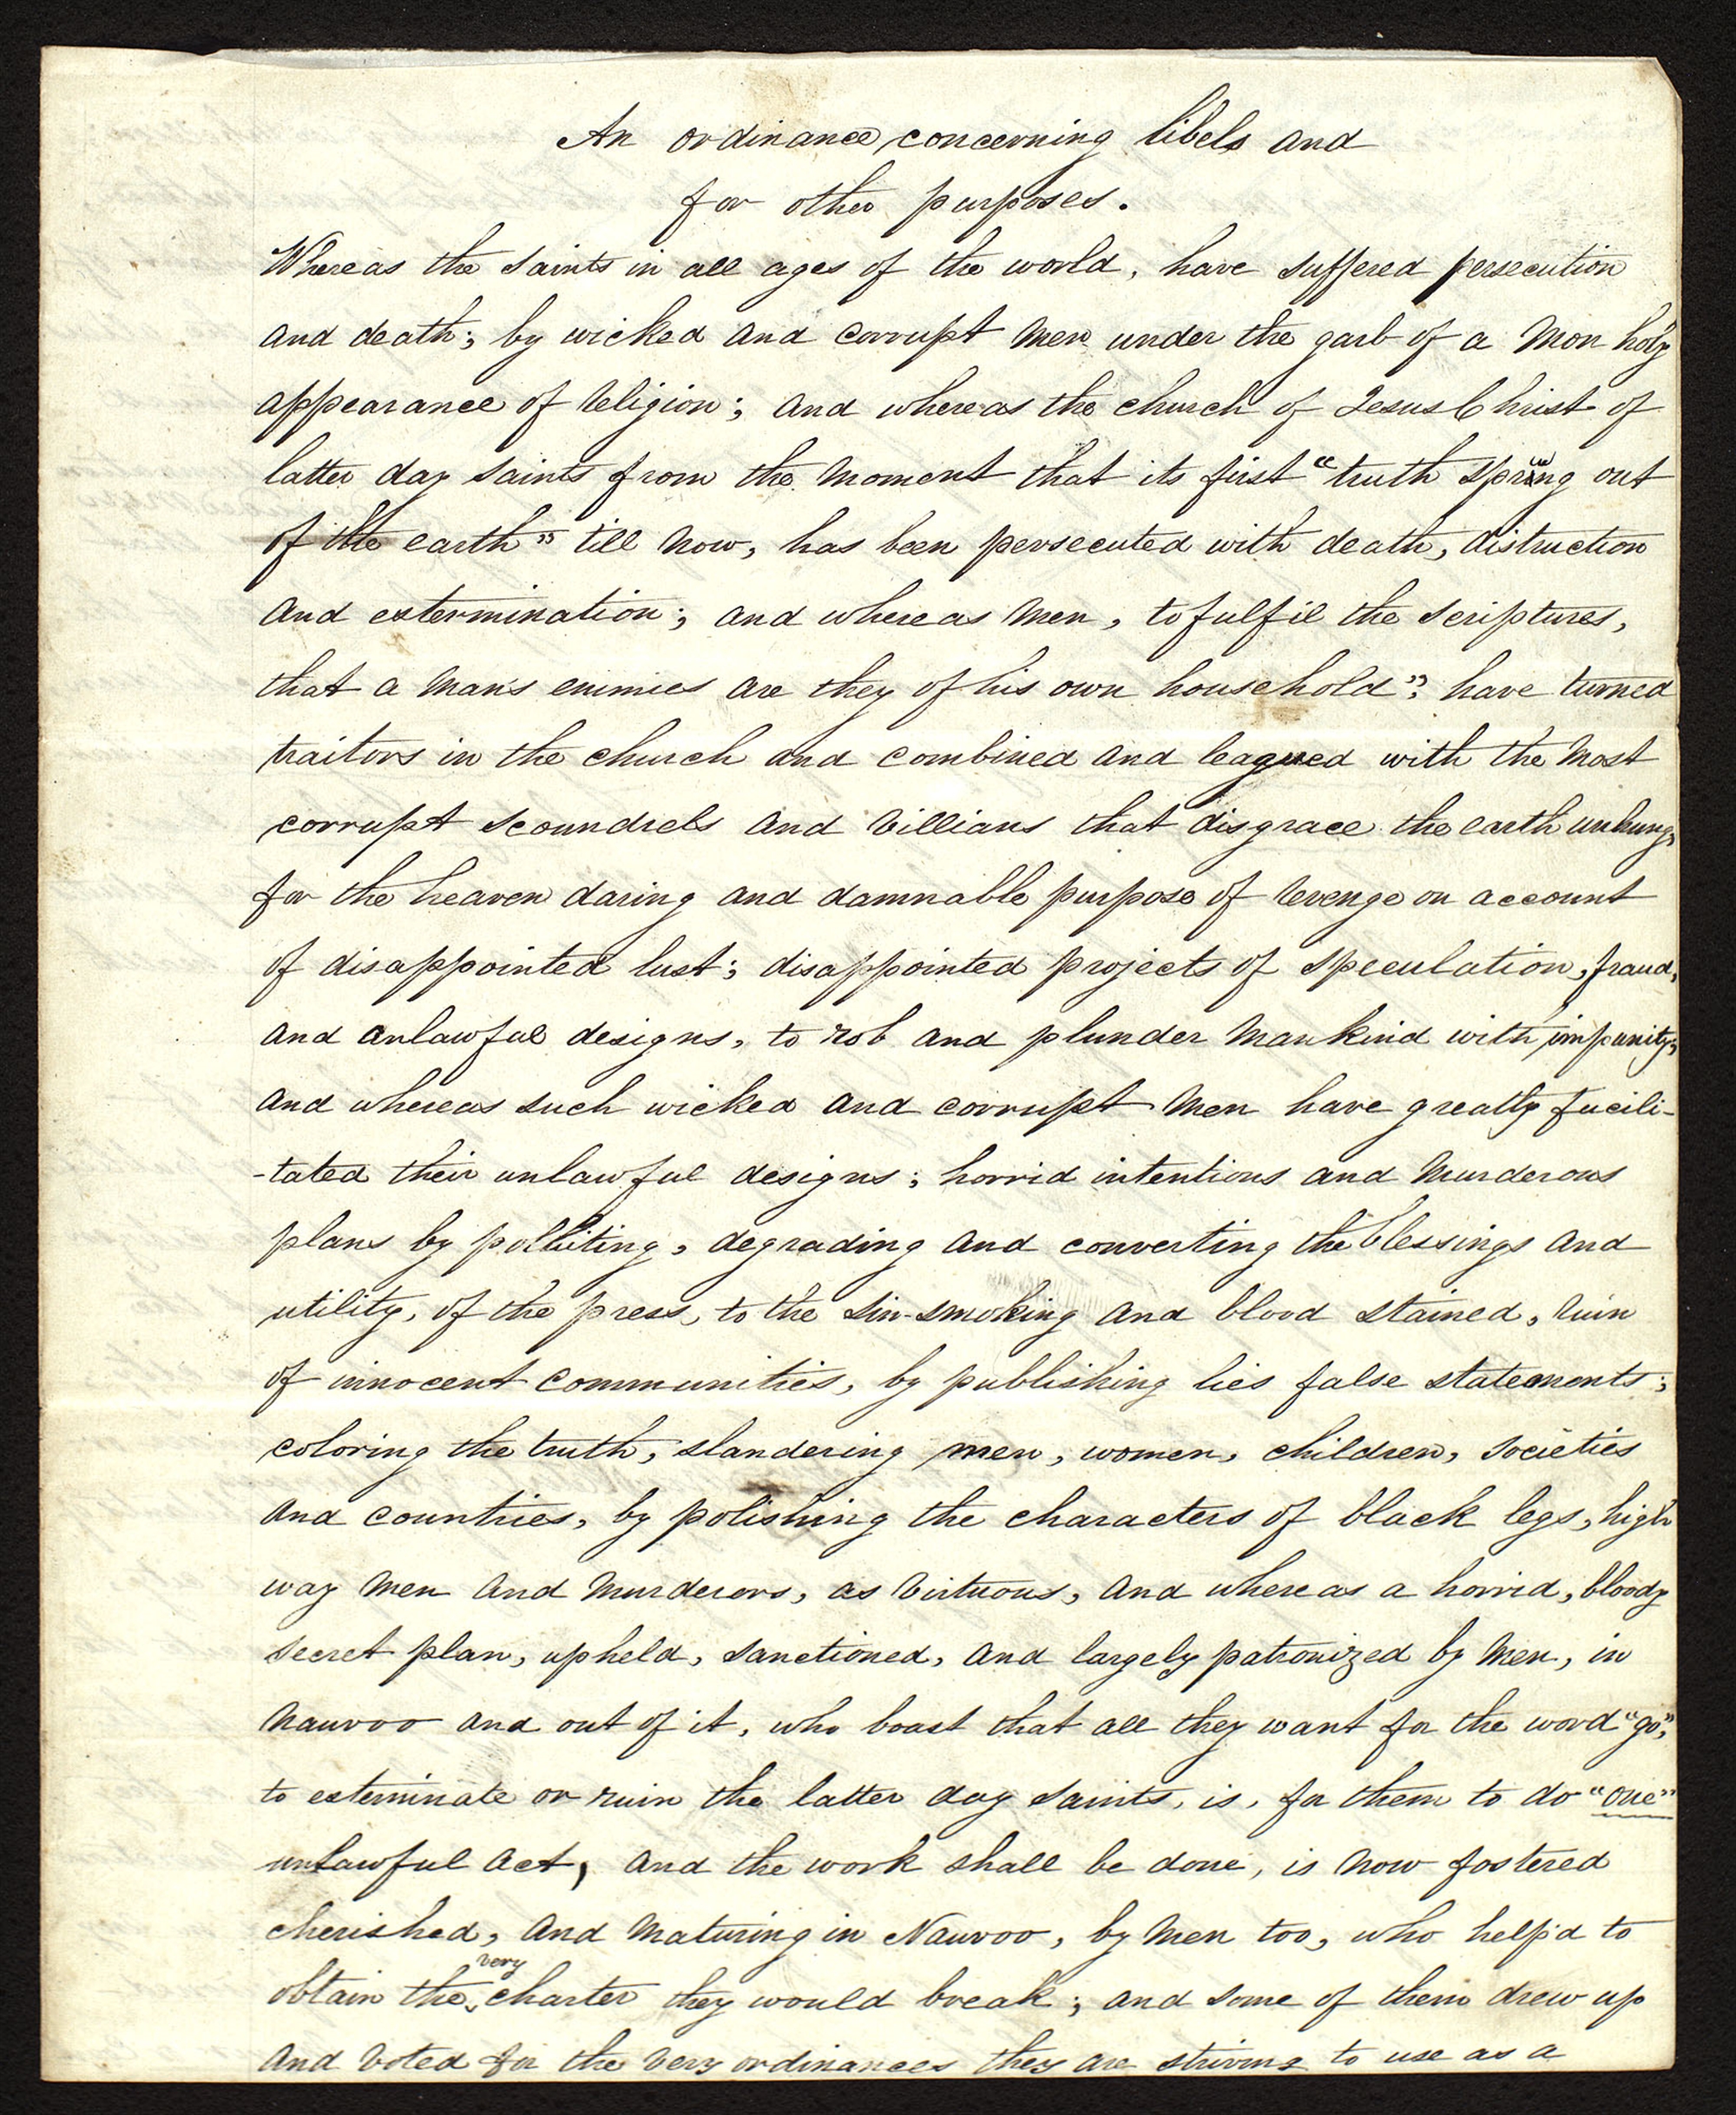 An ordinance concerning libels and
for other purposes.
Whereas the saints in all ages of the world, have suffered persecution
and death; by wicked and corrupt men under the garb of a mon holy
appearance of religion; and whereas the church of Jesus Christ of
latter day saints from the moment that its first "truth sprung out
of the earth" till now, has been persecuted with death, distruction
and extermination; and whereas men, to fulfil the scriptures,
that a man's enimies are they of his own household"; have turned
traitors in the church and combined and leagued with the most
corrupt scoundrels and villians that disgrace the earth unhung,
for the heaven daring and damnable purpose of revenge on account
of disappointed lust; disappointed projects of speculation, fraud,
and unlawful designs, to rob and plunder mankind with impunity;
and whereas such wicked and corrupt men have greatly facili-
-tated their unlawful designs; horrid intentions and murderous
plans by polluting, degrading and converting the blessings and
utility, of the press, to the sin-smoking and blood stained, ruin
of innocent communities, by publishing lies false statements;
coloring the truth, slandering men, women, children, societies
and countries, by polishing the characters of black legs, high
way men and murderers, as virtuous, and whereas a horrid, bloody
secret plan, upheld, sanctioned, and largely patronized by men, in
Nauvoo and out of it, who boast that all they want for the word "go,"
to exterminate or ruin the latter day saints, is, for them to do "one"
unlawful act, and the work shall be done, is now fostered
cherished, and maturing in Nauvoo, by men too, who help'd to
obtain the very charter they would break; and some of them drew up
and voted for the very ordinances they are striving to use as a